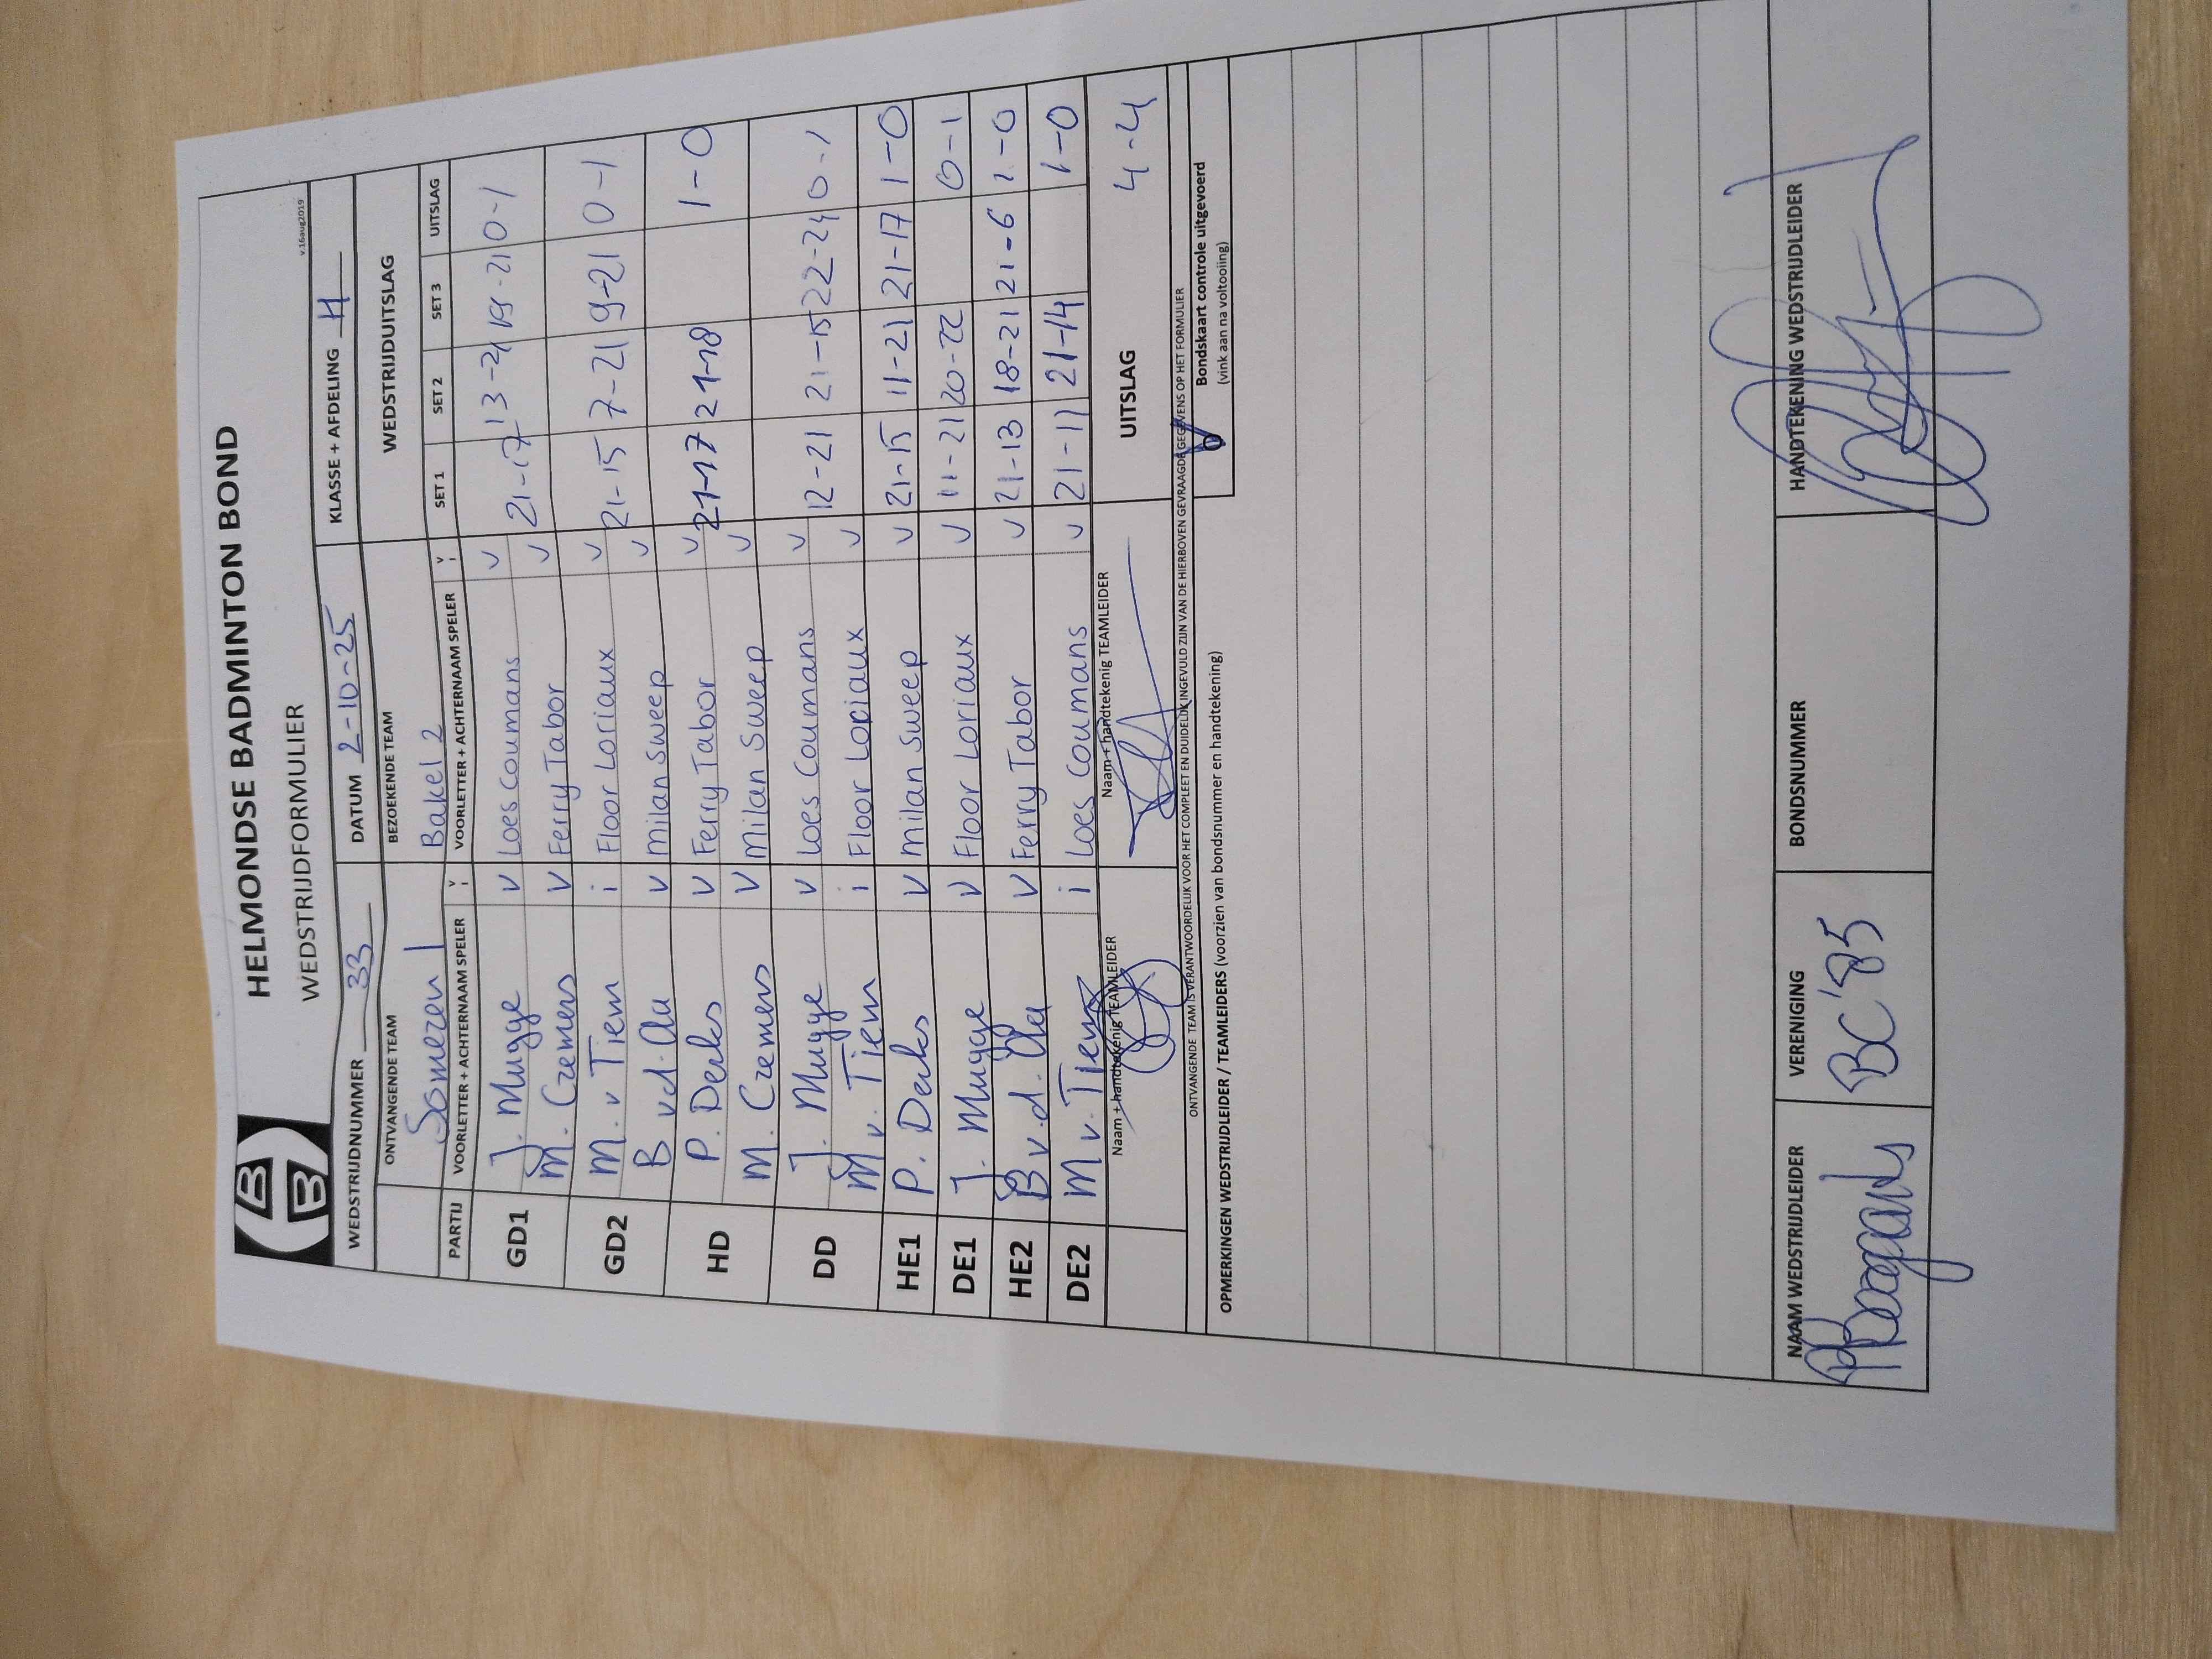 HELMONDSE BADMINTON BOND
WEDSTRIJDFORMULIER
v.16aug2019
WEDSTRIJDNUMMER 33 DATUM 2-10-25 KLASSE + AFDELING H
ONTVANGENDE TEAM BEZOEKENDE TEAM WEDSTRIJDUITSLAG
Someren 1 Bakel 2
PARTIJ VOORLETTER + ACHTERNAAM SPELER V I VOORLETTER + ACHTERNAAM SPELER V I SET 1 SET 2 SET 3 UITSLAG
GD1 J. Mugge V Loes Coumans V 21-17 13-21 19-21 0-1
M. Cremers V Ferry Tabor V
GD2 M. v Tiem i Floor Loriaux V 21-15 7-21 9-21 0-1
B vd Aa V Milan Sweep V
HD P. Derks V Ferry Tabor V 21-17 21-18 1-0
M. Cremers V Milan Sweep V
DD J. Mugge V Loes Coumans V 12-21 21-15 22-24 0-1
M v. Tiem i Floor Loriaux V
HE1 P. Derks V Milan Sweep V 21-15 11-21 21-17 1-0
DE1 J. Mugge V Floor Loriaux V 11-21 20-22 0-1
HE2 B v.d. Aa V Ferry Tabor V 21-13 18-21 21-6 1-0
DE2 M v. Tiem i Loes Coumans V 21-11 21-14 1-0
Naam + handtekenig TEAMLEIDER Naam + handtekenig TEAMLEIDER UITSLAG 4-4
ONTVANGENDE TEAM IS VERANTWOORDELIJK VOOR HET COMPLEET EN DUIDELIJK INGEVULD ZIJN VAN DE HIERBOVEN GEVRAAGDE GEGEVENS OP HET FORMULIER
OPMERKINGEN WEDSTRIJDLEIDER / TEAMLEIDERS (voorzien van bondsnummer en handtekening)
Bondskaart controle uitgevoerd
(vink aan na voltooiing)
NAAM WEDSTRIJDLEIDER VERENIGING BONDSNUMMER HANDTEKENING WEDSTRIJDLEIDER
BC'85